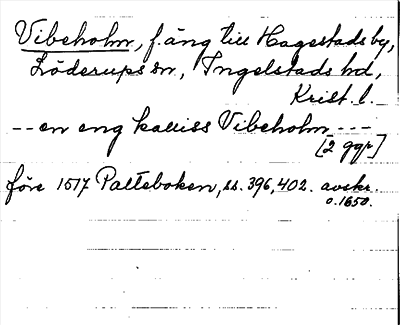 Vibeholm, f. äng till Hagestads by,
Löderups sn., Ingelstads hd,
Krist. l.
-- en eng kalliss Vibeholm ---
[2 ggr]
före 1517 Palteboken, ss. 396, 402. avskr.
o. 1650.